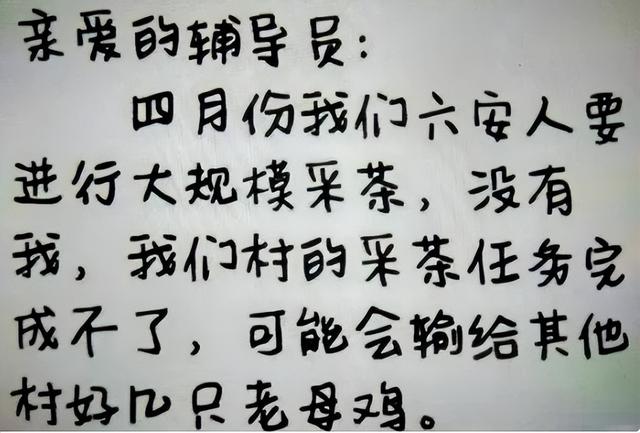 亲爱的辅导员：
四月份我们六安人要
进行大规模采茶，没有
我，我们村的采茶任务完
成不了，可能会输给其他
村好几只老母鸡。